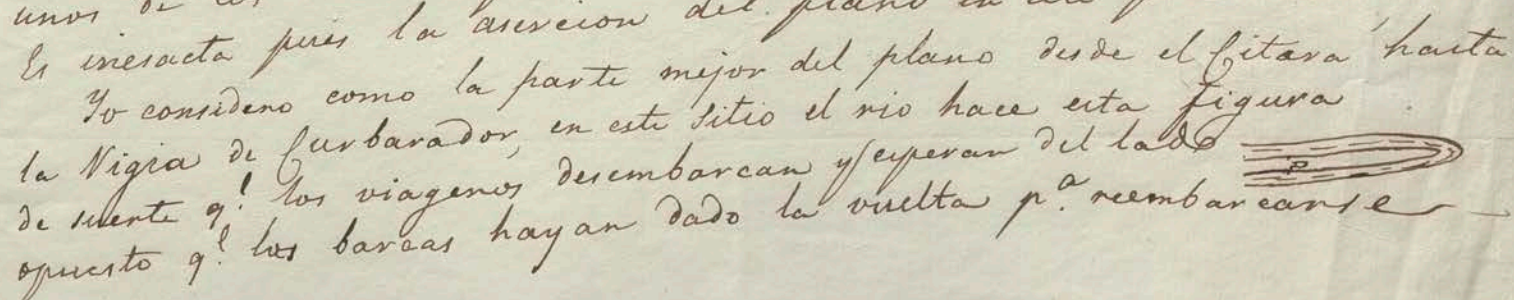 unos de los
Es inesacta pues la asercion del plano en
Yo considero como la parte mejor del plano desde el Citara hasta
la Vigia de Curbarador, en este sitio el rio hace esta figura
de suerte q.e los viageros desembarcan y esperan del lado
opuesto q.e las barcas hayan dado la vuelta p.a reembarcarse
P